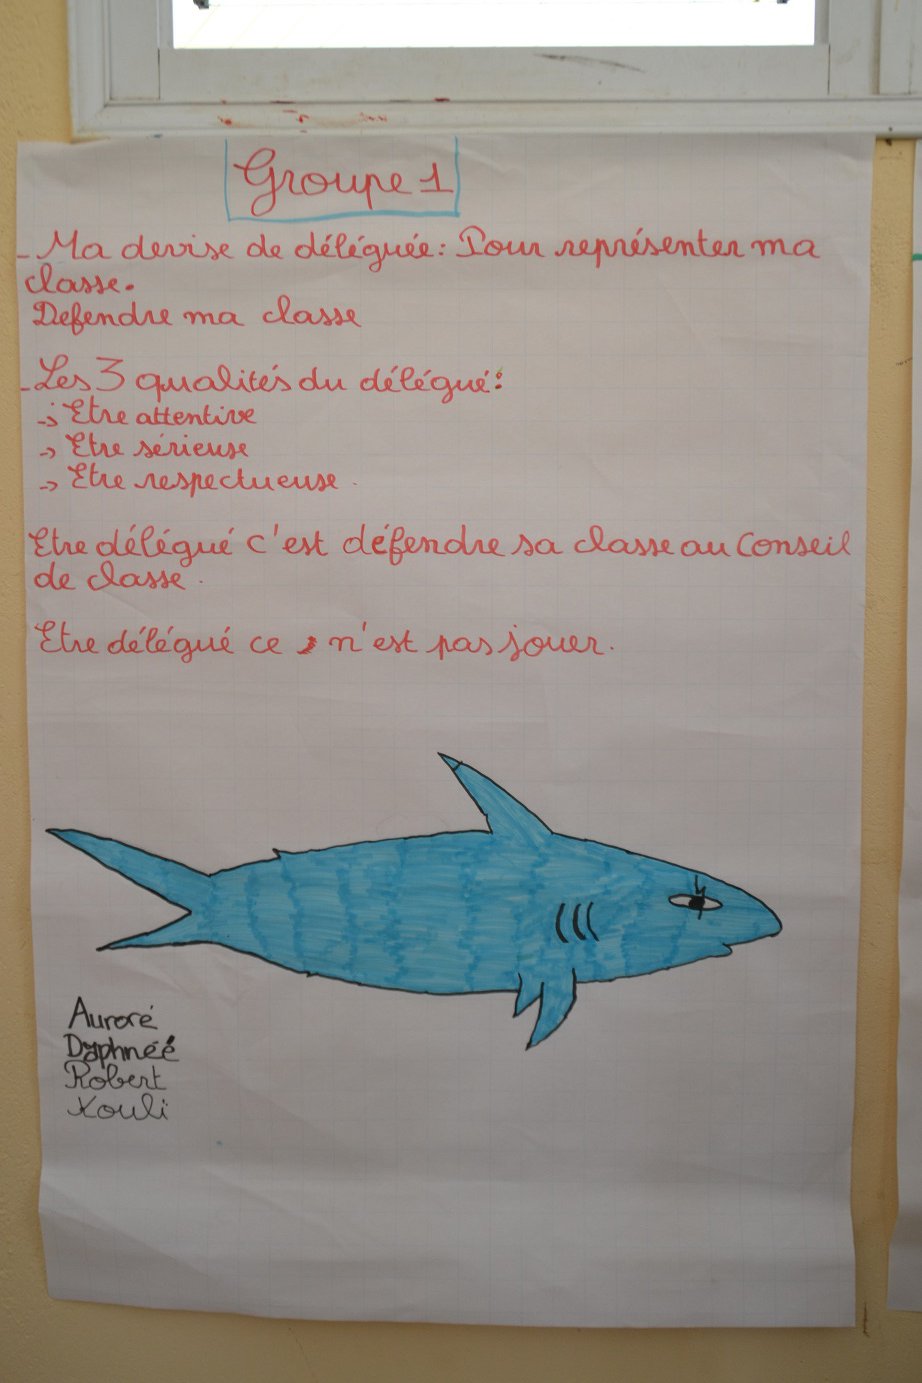 Groupe 1
- Ma devise de déléguée : Pour représenter ma
classe.
Defendre ma classe
- Les 3 qualités du délégué :
-> Etre attentive
-> Etre sérieuse
-> Etre respectueuse.
Etre délégué c'est défendre sa classe au Conseil
de classe.
Etre délégué ce n'est pas jouer.
Auroré
Daphnéé
Robert
Xouli